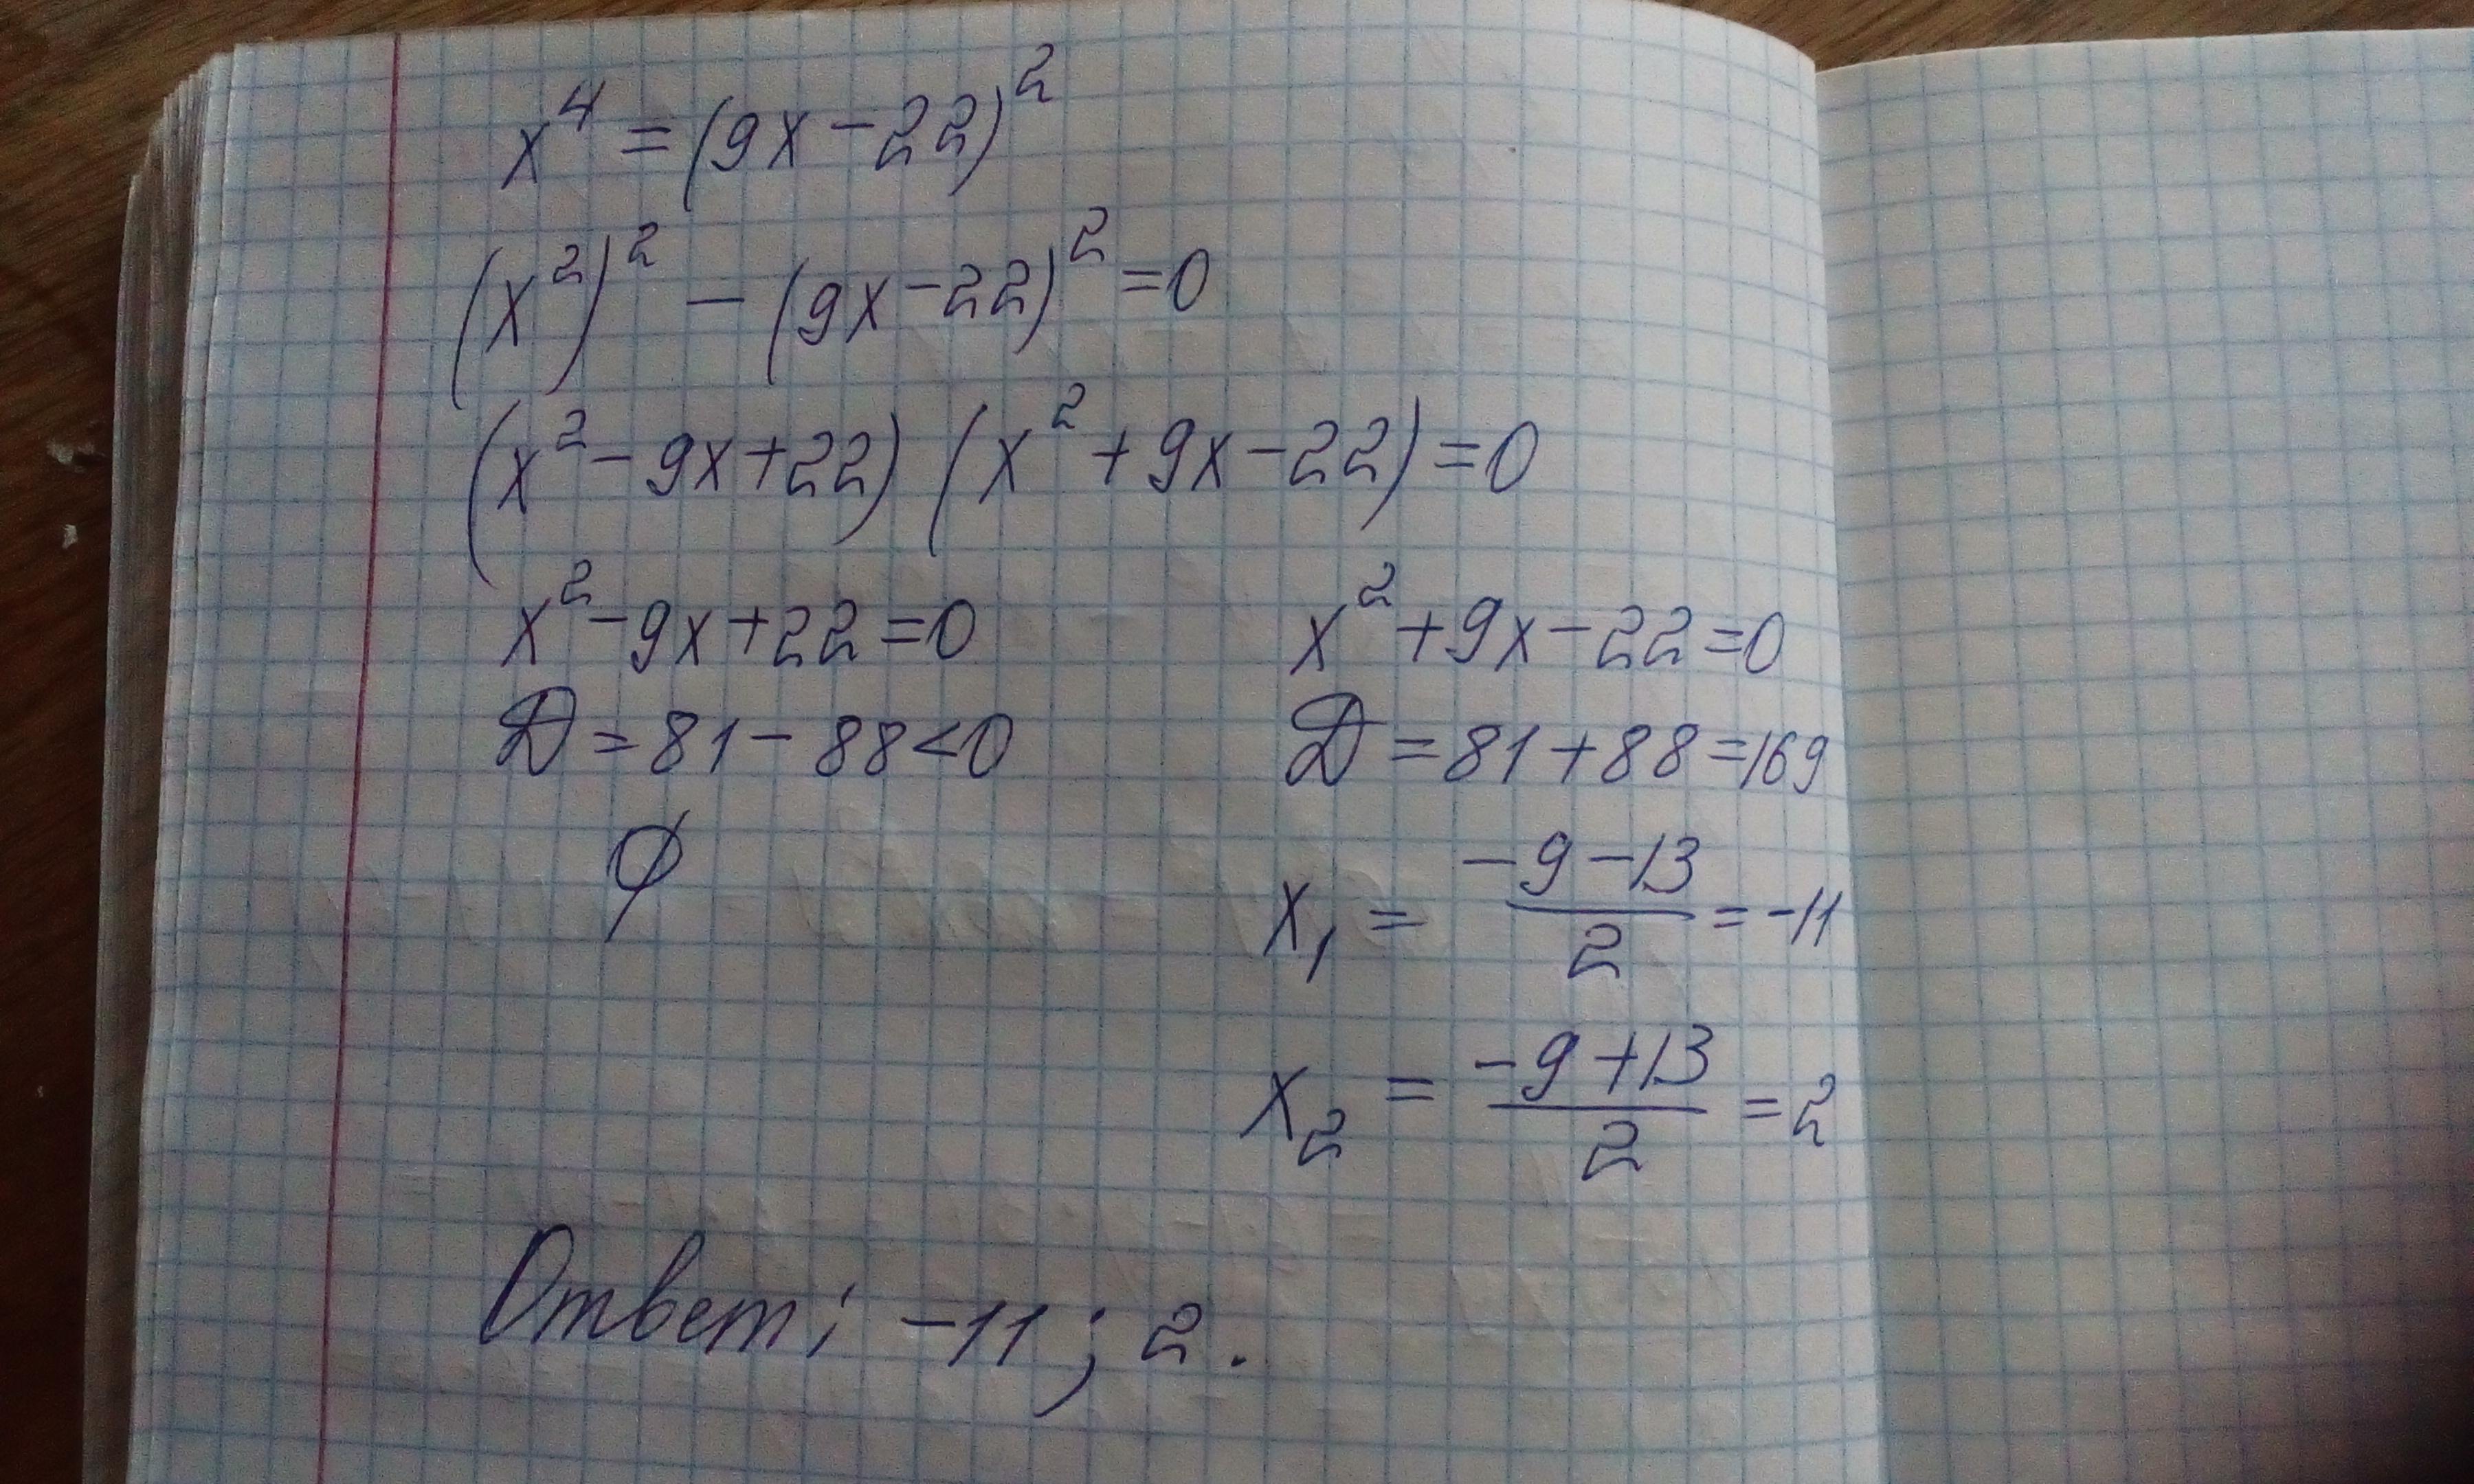 x⁴ = (9x − 22)²
(x²)² − (9x − 22)² = 0
(x² − 9x + 22) (x² + 9x − 22) = 0
x² − 9x + 22 = 0    x² + 9x − 22 = 0
Д = 81 − 88 < 0    Д = 81 + 88 = 169
∅    x₁ = (−9 − 13)/2 = −11
x₂ = (−9 + 13)/2 = 2
Ответ: −11; 2.